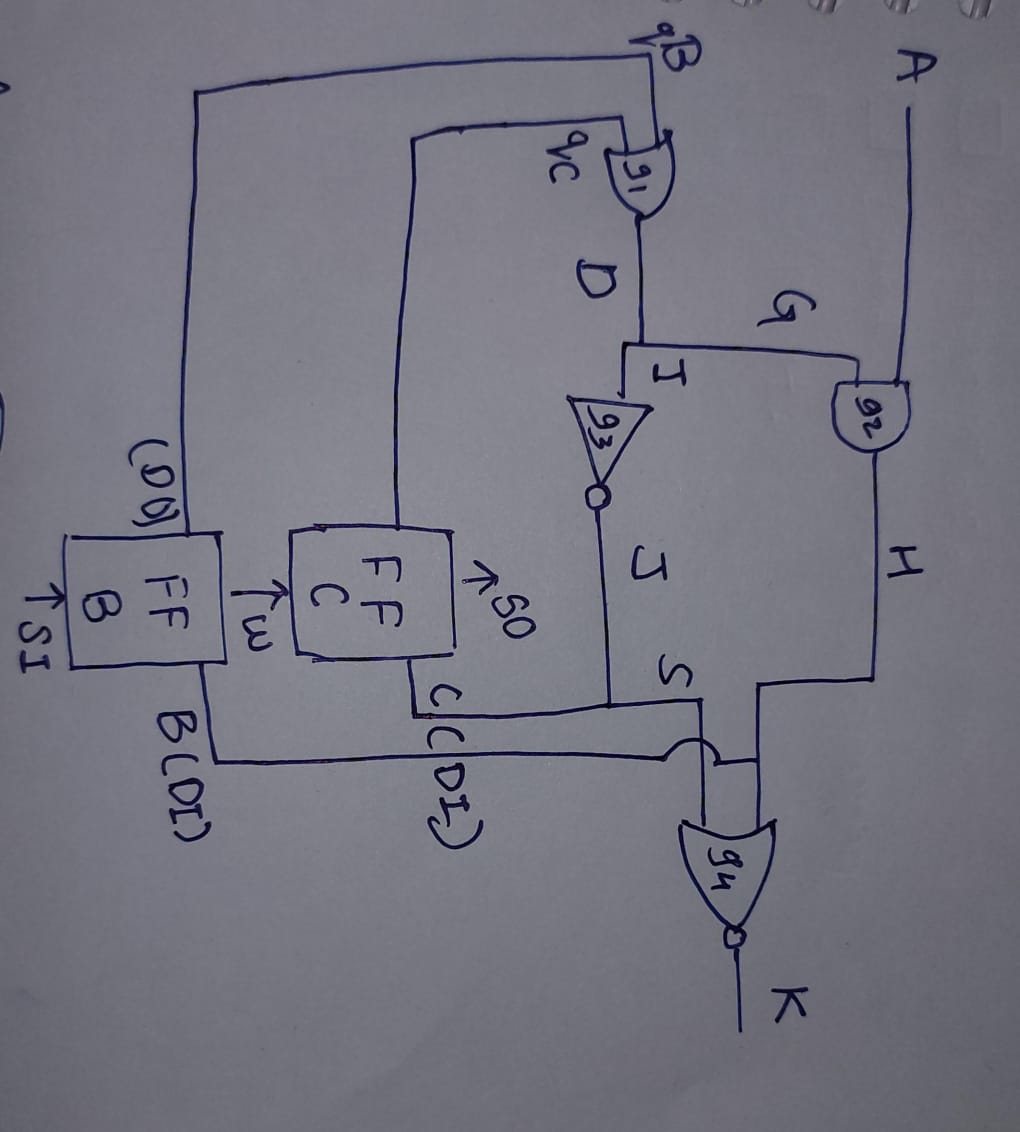 A
g2
H
G
K
g4
qB
g1
I
J
S
D
g3
qC
SO
C (DI)
FF
C
W
(DO)
FF
B
B (DI)
SI